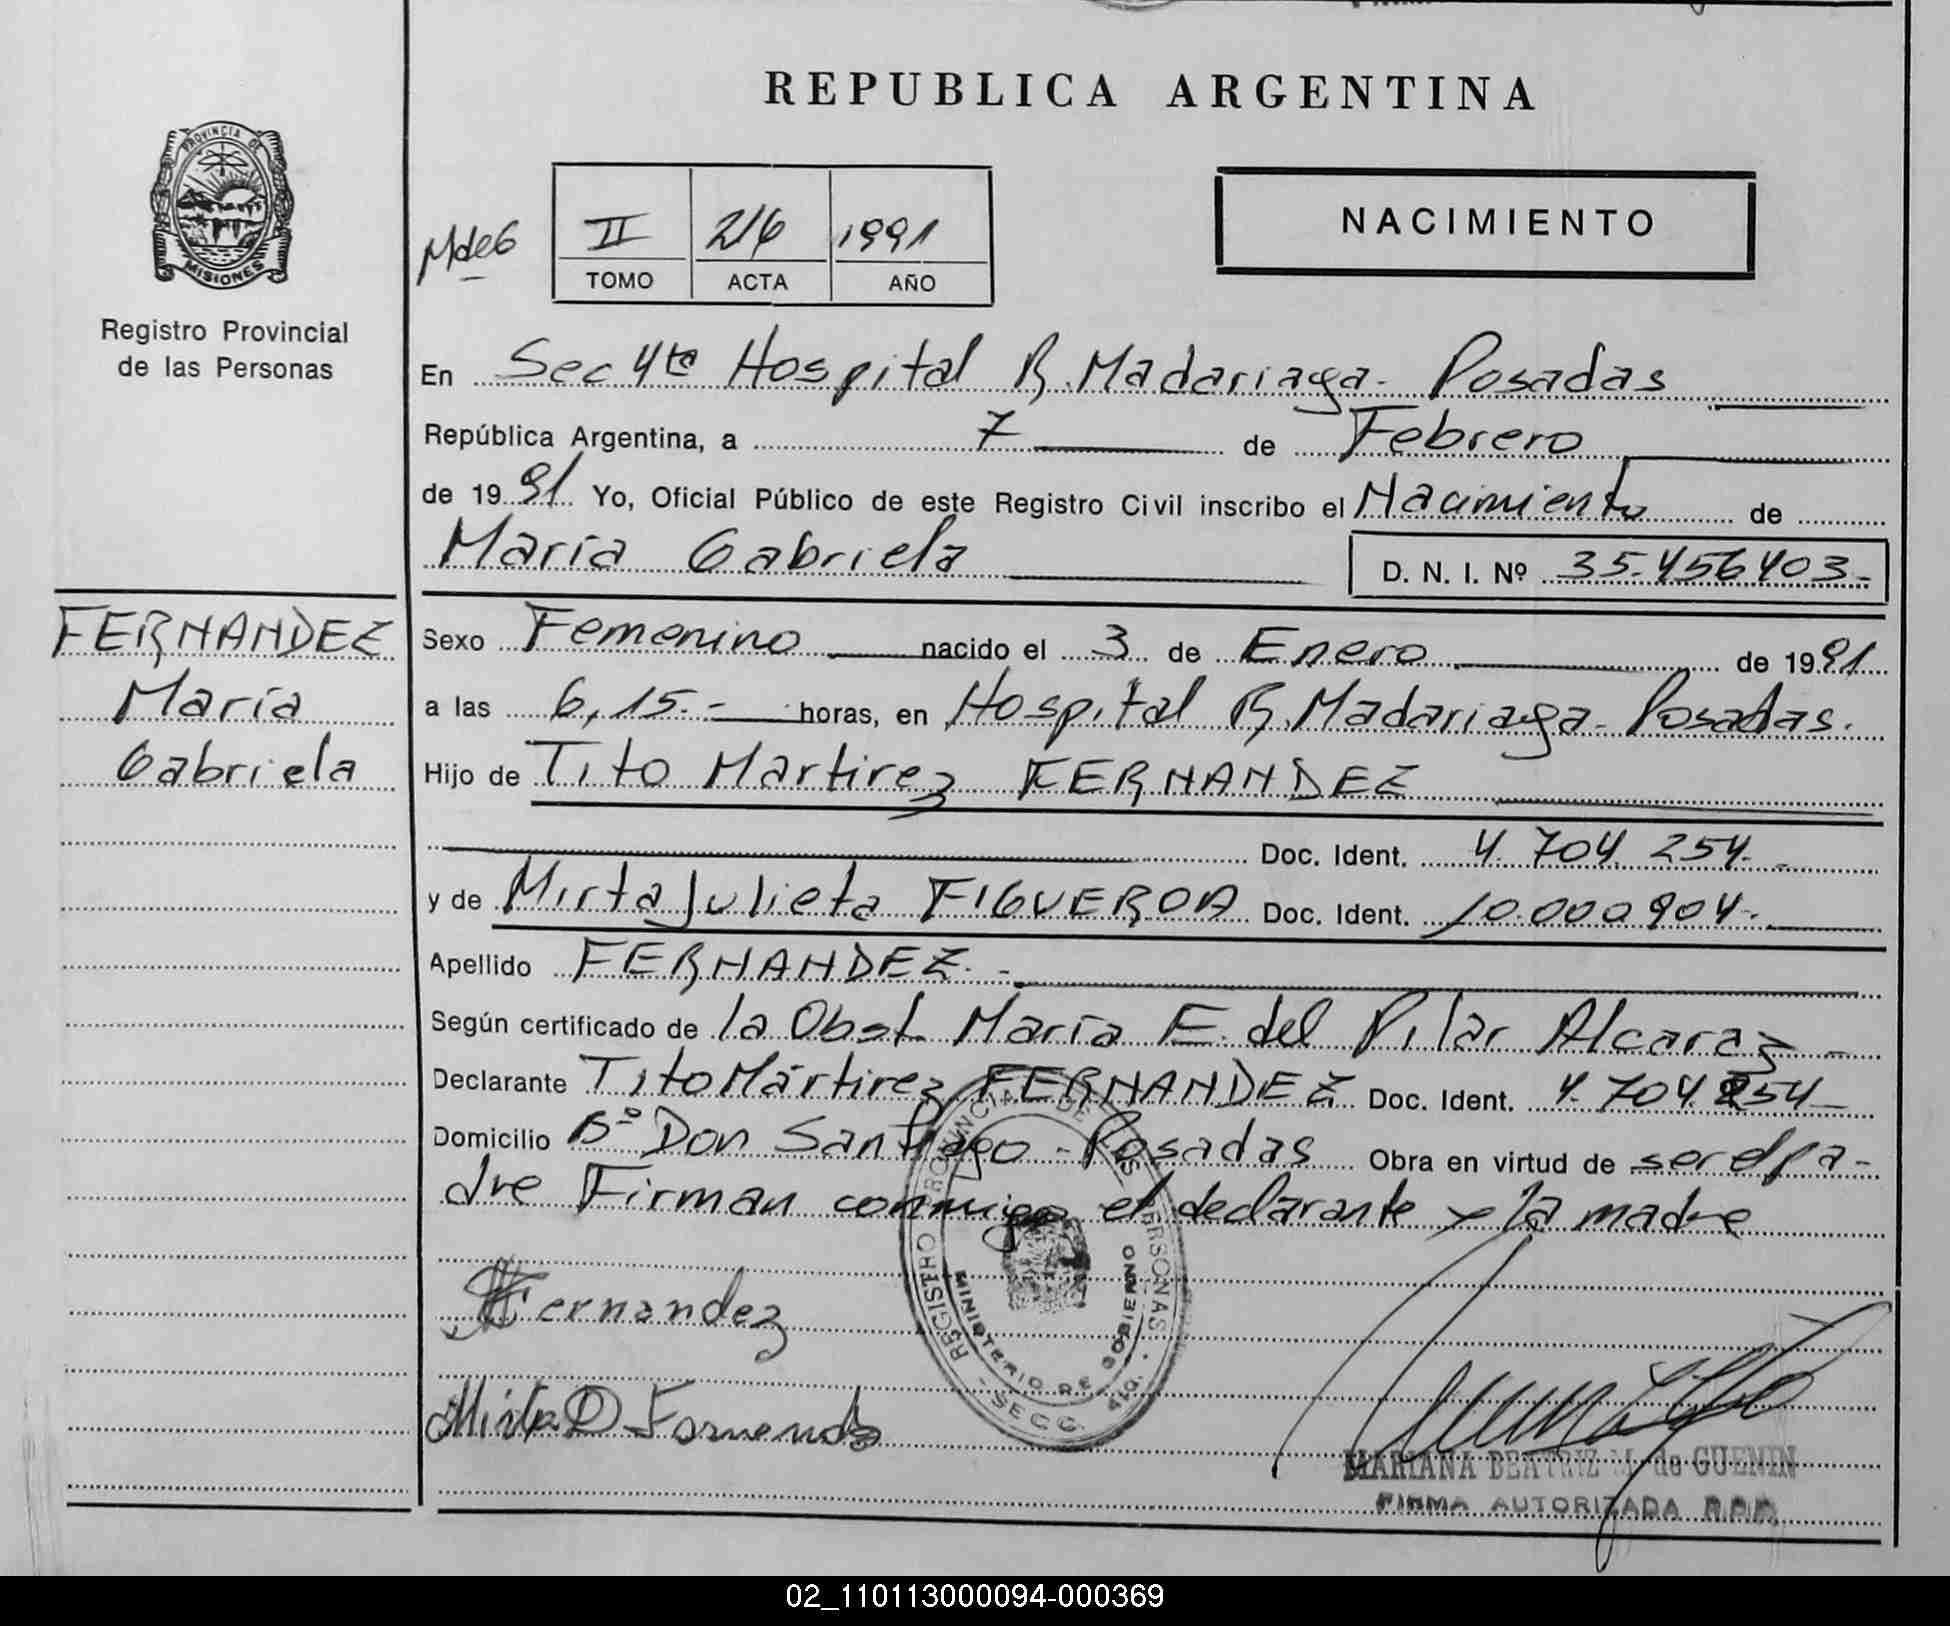 REPUBLICA ARGENTINA
PROVINCIA DE
MISIONES
Registro Provincial
de las Personas
MdeG
II 216 1991
TOMO ACTA AÑO
NACIMIENTO
En Sec 4ta Hospital R. Madariaga - Posadas
República Argentina, a 7 de Febrero
de 1991 Yo, Oficial Público de este Registro Civil inscribo el Nacimiento de
María Gabriela D. N. I. Nº 35.456403-
FERNANDEZ
María
Gabriela
Sexo Femenino nacido el 3 de Enero de 1991
a las 6,15.- horas, en Hospital R. Madariaga - Posadas.
Hijo de Tito Martirez FERNANDEZ
Doc. Ident. 4.704.254.-
y de Mirta Julieta FIGUEROA Doc. Ident. 10.000904-.
Apellido FERNANDEZ.-
Según certificado de la Obst. María E. del Pilar Alcaraz -
Declarante Tito Mártirez FERNANDEZ Doc. Ident. 4.704.254-
Domicilio Bº Don Santiago - Posadas Obra en virtud de ser el pa-
dre Firman conmigo el declarante y la madre
Fernandez
REGISTRO PROVINCIAL DE LAS PERSONAS
MINISTERIO DE GOBIERNO
- SECC. 4ta. -
MARIANA BEATRIZ M. de GUENIN
FIRMA AUTORIZADA R.P.P.
02_110113000094-000369